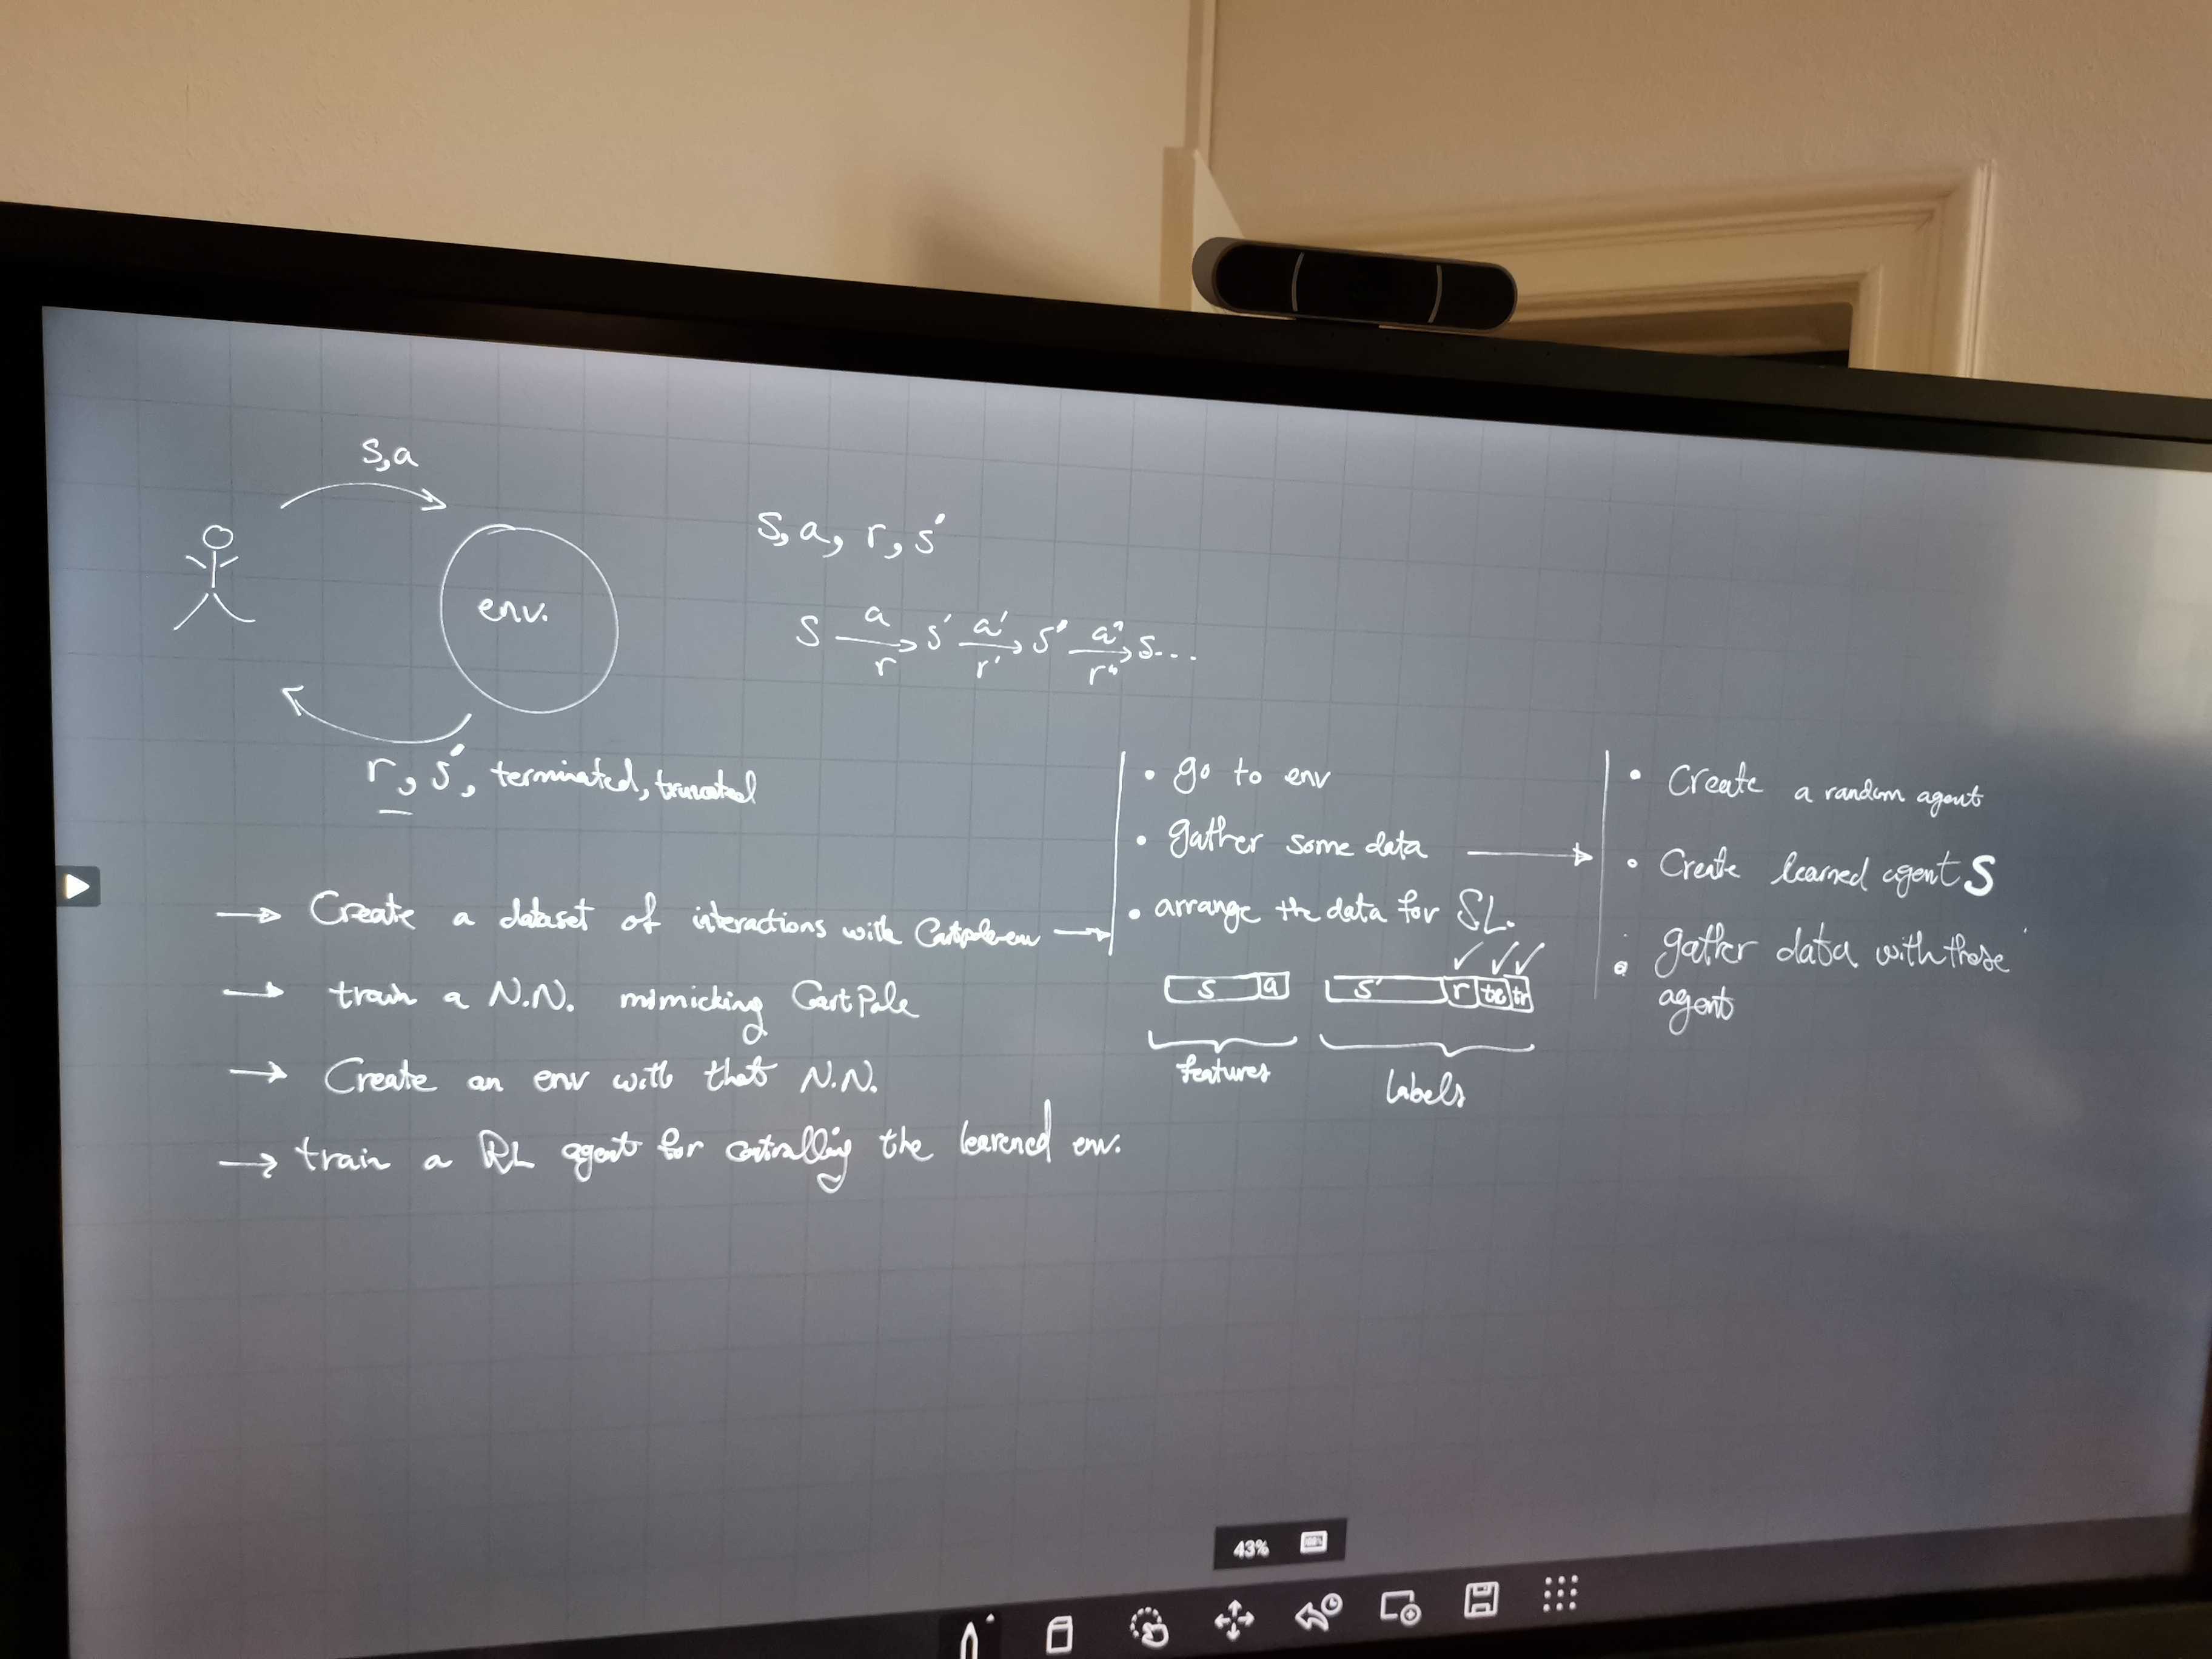 s,a
env.
r, s', terminated, truncated
s, a, r, s'
s a r s' a' r' s'' a'' r'' s...
→ Create a dataset of interactions with Cartpole env →
→ train a N.N. mimicking CartPole
→ Create an env with that N.N.
→ train a RL agent for controlling the learened env.
• go to env
• gather some data →
• arrange the data for SL.
s a s' r te tr
features
labels
• Create a random agent
• Create learned agent S
• gather data with those
agent
43%